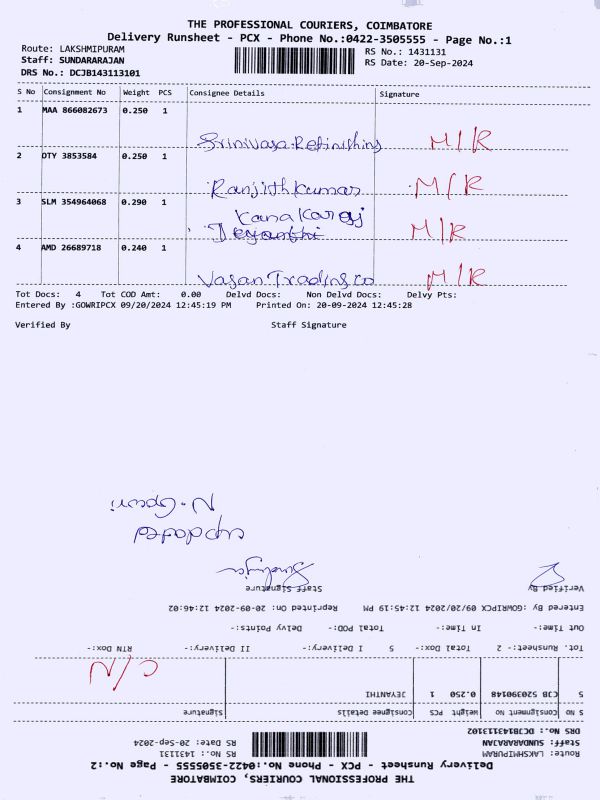 THE PROFESSIONAL COURIERS, COIMBATORE
Delivery Runsheet - PCX - Phone No.:0422-3505555 - Page No.:1
Route: LAKSHMIPURAM RS No.: 1431131
Staff: SUNDARARAJAN RS Date: 20-Sep-2024
DRS No.: DCJB143113101
S No Consignment No Weight PCS Consignee Details Signature
1 MAA 866082673 0.250 1
Srinivasa Refinishing M/R
2 DTY 3853584 0.250 1
Ranjithkumar M/R
3 SLM 354964068 0.290 1
Kanakaraj
Jeyanthi M/R
4 AMD 26689718 0.240 1
Vasan Trading co M/R
Tot Docs: 4 Tot COD Amt: 0.00 Delvd Docs: Non Delvd Docs: Delvy Pts:
Entered By :GOWRIPCX 09/20/2024 12:45:19 PM Printed On: 20-09-2024 12:45:28
Verified By Staff Signature
THE PROFESSIONAL COURIERS, COIMBATORE
Delivery Runsheet - PCX - Phone No.:0422-3505555 - Page No.:2
Route: LAKSHMIPURAM RS No.: 1431131
Staff: SUNDARARAJAN RS Date: 20-Sep-2024
DRS No.: DCJB143113102
S No Consignment No Weight PCS Consignee Details Signature
5 CJB 520390148 0.250 1 JEYANTHI C/N
Tot. Runsheet:- 2 Total Dox:- 5 I Delivery:- II Delivery:- RTN Dox:-
Out Time:- In Time:- Total POD:- Delvy Points:-
Entered By :GOWRIPCX 09/20/2024 12:45:19 PM Reprinted On: 20-09-2024 12:46:02
Verified By Staff Signature
updated
N. Gowri